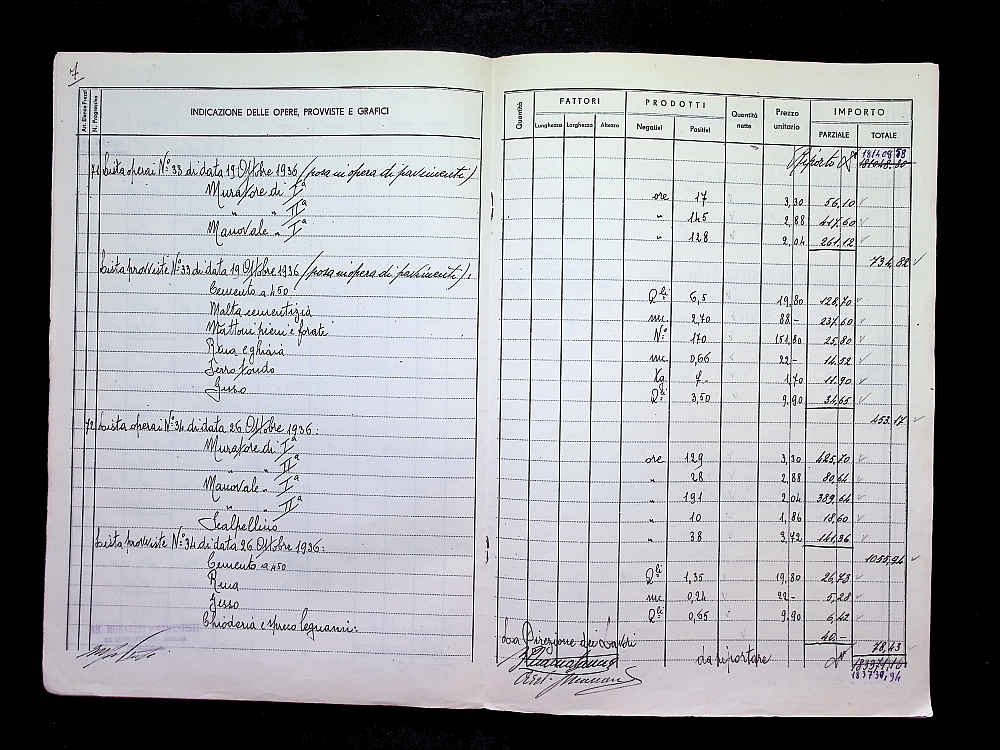 7
Art. Elenco Prezzi
N. Progressivo
INDICAZIONE DELLE OPERE, PROVVISTE E GRAFICI
Quantità
FATTORI
PRODOTTI
Quantità nette
Prezzo unitario
IMPORTO
Lunghezza Larghezza Altezza
Negativi Positivi
PARZIALE TOTALE
181408,58
Riporto
71 Lista operai N° 33 di data 19 Ottobre 1936 (posa in opera di pavimenti)
Muratore di Iª ore 17 3,30 56,10
" " IIª " 145 2,88 417,60
Manovale " Iª " 128 2,04 261,12
734,82
Lista provviste N° 33 di data 19 Ottobre 1936 (posa in opera di pavimenti):
Cemento a 450 Q.li 6,5 19,80 128,70
Malta cementizia mc. 2,70 88.- 237,60
Mattoni pieni e forati N° 170 151,80 25,80
Rena e ghiaia mc. 0,66 22.- 14,52
Ferro tondo Kg 7.- 1,70 11,90
Gesso Q.li 3,50 9,90 34,65
453,17
72 Lista operai N° 34 di data 26 Ottobre 1936:
Muratore di Iª ore 129 3,30 425,70
" " IIª " 28 2,88 80,64
Manovale " Iª " 191 2,04 389,64
" " IIª " 10 1,86 18,60
Scalpellino " 38 3,72 141,36
1055,94
Lista provviste N° 34 di data 26 Ottobre 1936:
Cemento a 450 Q.li 1,35 19,80 26,73
Rena mc. 0,24 22.- 5,28
Gesso Q.li 0,65 9,90 6,42
Chioderia e spreco legnami: 40.-
78,43
La Direzione dei Lavori
da riportare
183730,94